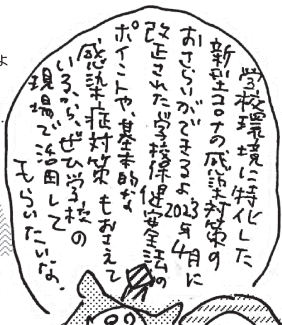 学校環境に特化した
新型コロナの感染対策の
おさらいができるよ。2023年4月に
改正された学校保健安全法の
ポイントや、基本的な
感染症対策もおさえて
いるから、ぜひ学校の
現場で活用して
もらいたいな。
よ